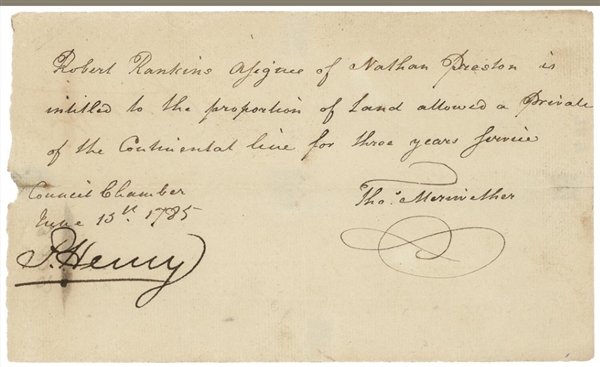 Robert Rankins Assignee of Nathan Preston is
intitled to the proportion of Land allowed a Private
of the Continental line for three years service
Council Chamber
June 13th. 1785
Tho.s Meriwether
P. Henry